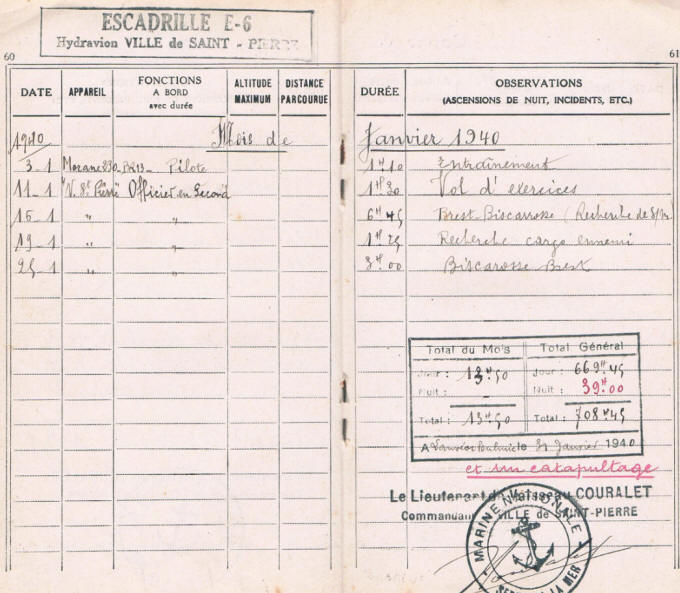 ESCADRILLE E-6
Hydravion VILLE de SAINT-PIERRE
60
61
DATE APPAREIL FONCTIONS A BORD avec durée ALTITUDE MAXIMUM DISTANCE PARCOURUE DURÉE OBSERVATIONS (ASCENSIONS DE NUIT, INCIDENTS, ETC.)
1940 Mois de Janvier 1940
3-1 Morane 230 Pilote 1H10 Entraînement
11-1 "V. St Pierre" Officier en Second 1H20 Vol d'exercices
16-1 " " 6H45 Brest Biscarosse (Recherche de
19-1 " " 1H25 Recherche cargo ennemi
25-1 " " 3H00 Biscarosse Brest
Total du Mois Total Général
Jour : 13H50 Jour : 669H45
Nuit : Nuit : 39H00
Total : 13H50 Total : 708H45
A Lanvéoc Poulmic le 31 Janvier 1940
et un catapultage
Le Lieutenant de Vaisseau COURALET
Commandant VILLE de SAINT-PIERRE
MARINE NATIONALE
LA MER